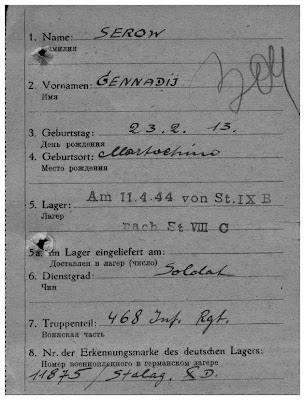 1. Name: SEROW
Фамилия
2. Vornamen: GENNADIJ
Имя
3. Geburtstag: 23.2.13.
День рождения
4. Geburtsort: Martochino
Место рождения
5. Lager: Am 11.4.44 von St.IX B
Лагер nach St VIII C
5a. im Lager eingeliefert am:
Доставлен в лагер (число)
6. Dienstgrad: Soldat
Чин
7. Truppenteil: 468 Inf. Rgt.
Воинская часть
8. Nr. der Erkennungsmarke des deutschen Lagers:
Номер военнопленного в германском лагере
11875 / Stalag. X D.